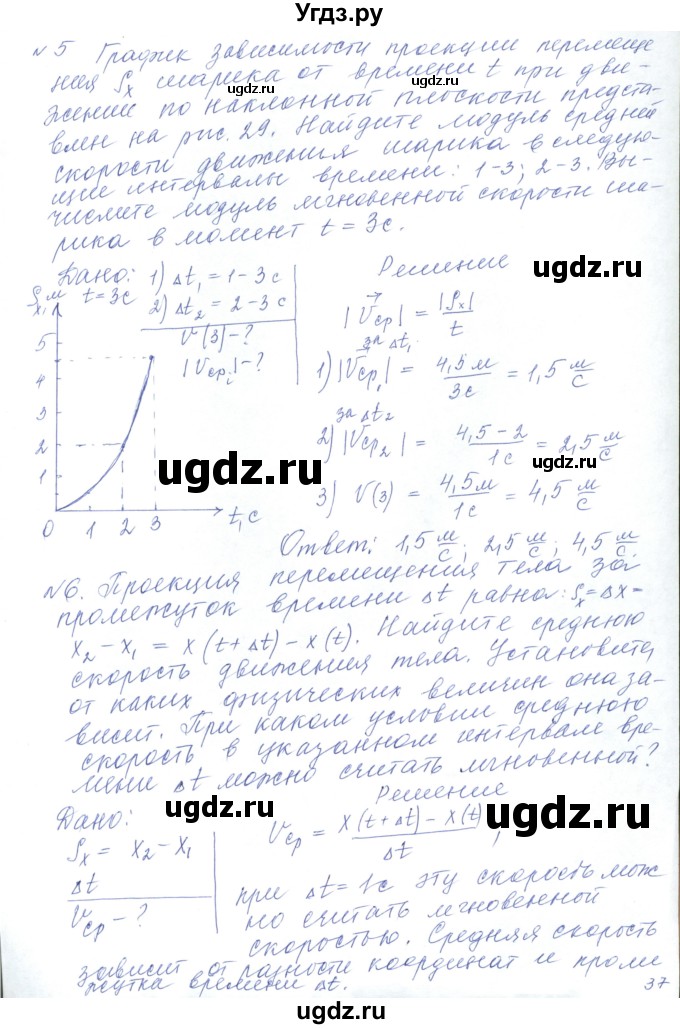 Угдз.ру
№5 График зависимости проекции перемеще
ния Sx шарика от времени t при дви-
жении по наклонной плоскости предста-
влен на рис. 29. Найдите модуль средней
скорости движения шарика в следую-
щие интервалы времени: 1-3; 2-3. Вы-
числите модуль мгновенной скорости ша-
рика в момент t = 3с.
Дано: 1) Δt₁ = 1-3 с
t = 3с 2) Δt₂ = 2-3 с
V(3) - ?
|Vcpᵢ| - ?
Решение
|V⃗ср| = |Sx|/t
за Δt₁
1) |Vср₁| = 4,5 м/3с = 1,5 м/с
за Δt₂
2) |Vср₂| = 4,5-2/1с = 2,5 м/с
3) V(3) = 4,5м/1с = 4,5 м/с
Sx, м
5
4
3
2
1
0 1 2 3 t, с
ugdz.ru
ugdz.ru
ugdz.ru
Ответ: 1,5 м/с; 2,5 м/с; 4,5 м/с.
№6. Проекция перемещения тела за
промежуток времени Δt равна: Sx = Δx =
x₂ - x₁ = x(t + Δt) - x(t). Найдите среднюю
скорость движения тела. Установите,
от каких физических величин она за-
висит. При каком условии среднюю
скорость в указанном интервале вре-
мени Δt можно считать мгновенной?
ugdz.ru
ugdz.ru
Дано:
Sx = x₂ - x₁
Δt
Vср - ?
Решение
Vср = x(t + Δt) - x(t)/Δt,
при Δt = 1с эту скорость мож
но считать мгновенной
скоростью. Средняя скорость
зависит от разности координат и проме
жутка времени Δt.
37
ugdz.ru
ugdz.ru
ugdz.ru
ugdz.ru
ugdz.ru